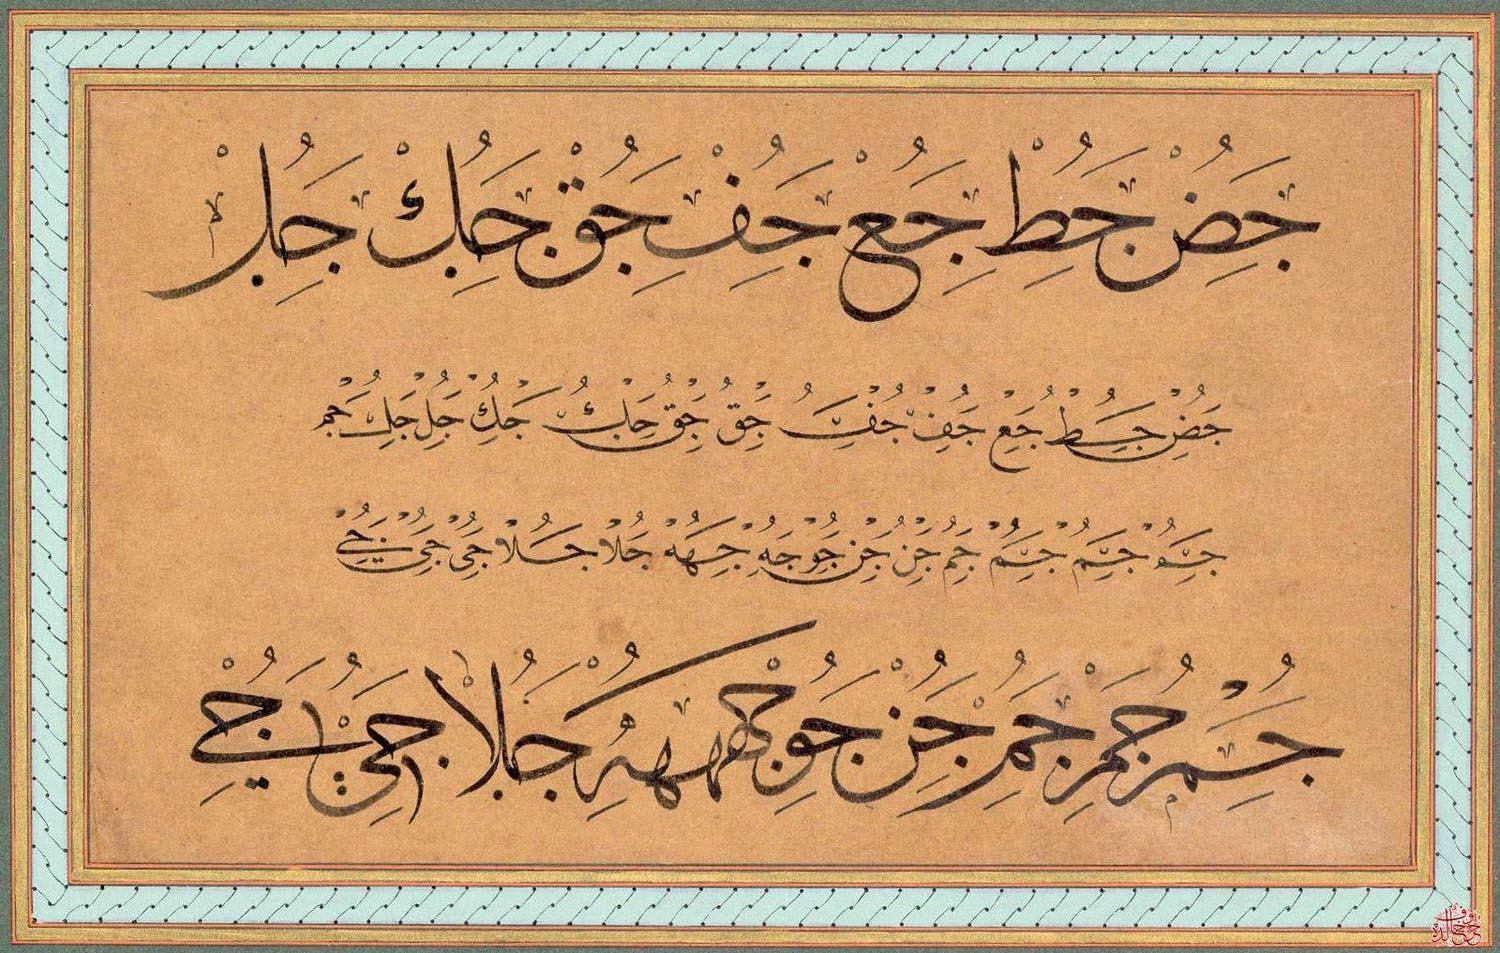 جض جط جع جف جق جك جل
جض جط جع جف جف جق جق جك جك جل جل جم
جم جم جم جم جن جن جو جه جهه جلا جلا جى جى جى
جم جم جم جن جو جههه جلا جى جى